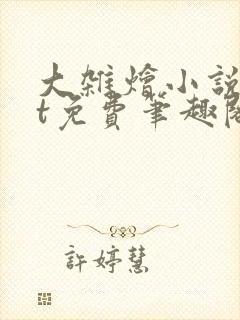 大雜燴小說
t免費筆趣閣
許婷慧